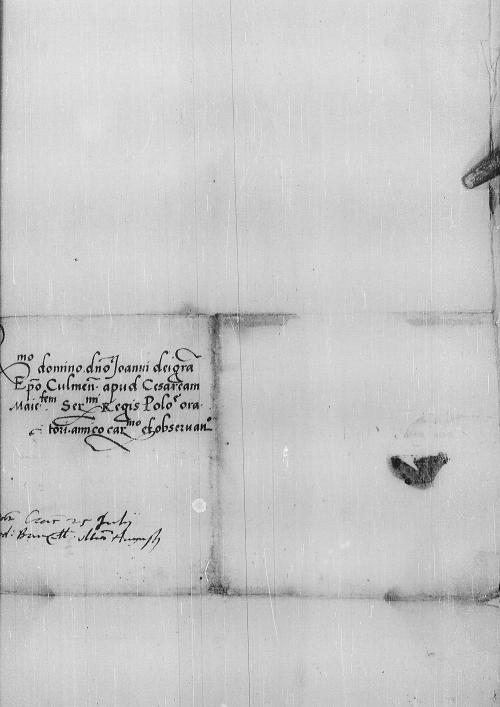 mo domino dnō Joanni dei grā
Epō Culmeñ apud Cesaream
Maiestem Sermi Regis Polōe ora
tori amico carmo et observano
25 Julij